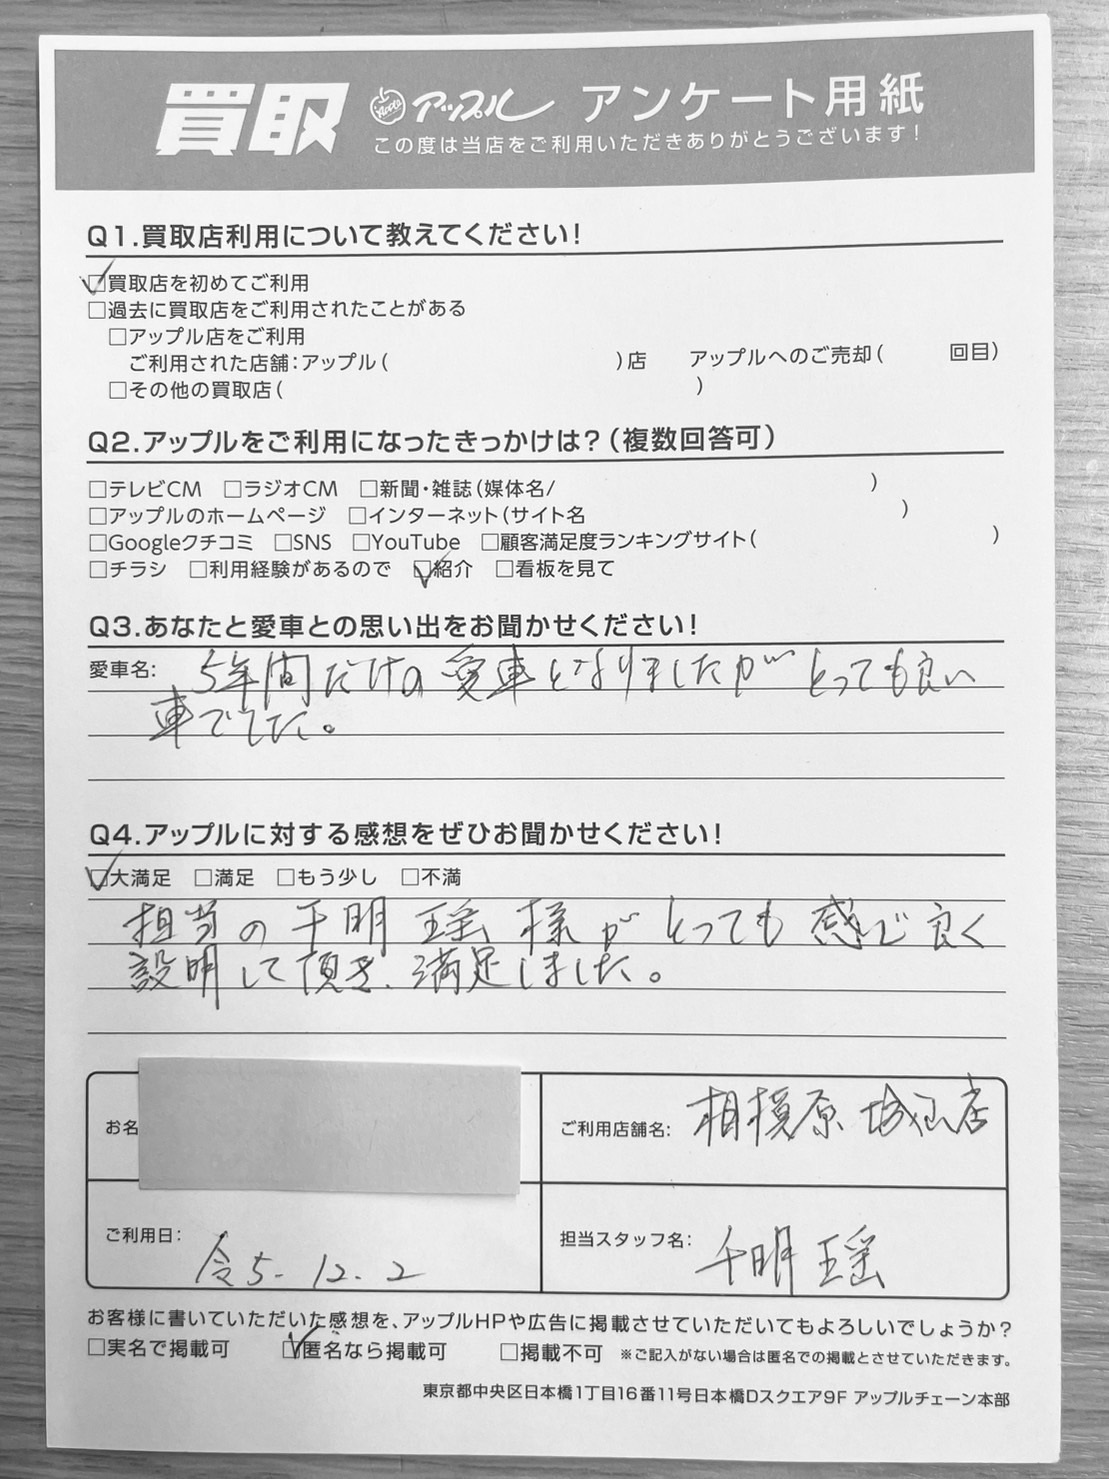 買取 Apple アップル アンケート用紙
この度は当店をご利用いただきありがとうございます！
Q1.買取店利用について教えてください！
☑買取店を初めてご利用
□過去に買取店をご利用されたことがある
□アップル店をご利用
ご利用された店舗：アップル（ ）店 アップルへのご売却（ 回目）
□その他の買取店（ ）
Q2.アップルをご利用になったきっかけは？（複数回答可）
□テレビCM □ラジオCM □新聞・雑誌（媒体名/ ）
□アップルのホームページ □インターネット（サイト名 ）
□Googleクチコミ □SNS □YouTube □顧客満足度ランキングサイト（ ）
□チラシ □利用経験があるので ☑紹介 □看板を見て
Q3.あなたと愛車との思い出をお聞かせください！
愛車名: 5年間だけの愛車となりましたがとっても良い
車でした。
Q4.アップルに対する感想をぜひお聞かせください！
☑大満足 □満足 □もう少し □不満
担当の千明 瑶様がとっても感じ良く
説明して頂き、満足しました。
お名
ご利用店舗名: 相模原 城山店
ご利用日: 令5.12.2
担当スタッフ名: 千明 瑶
お客様に書いていただいた感想を、アップルHPや広告に掲載させていただいてもよろしいでしょうか？
□実名で掲載可 ☑匿名なら掲載可 □掲載不可 ※ご記入がない場合は匿名での掲載とさせていただきます。
東京都中央区日本橋1丁目16番11号日本橋Dスクエア9F アップルチェーン本部